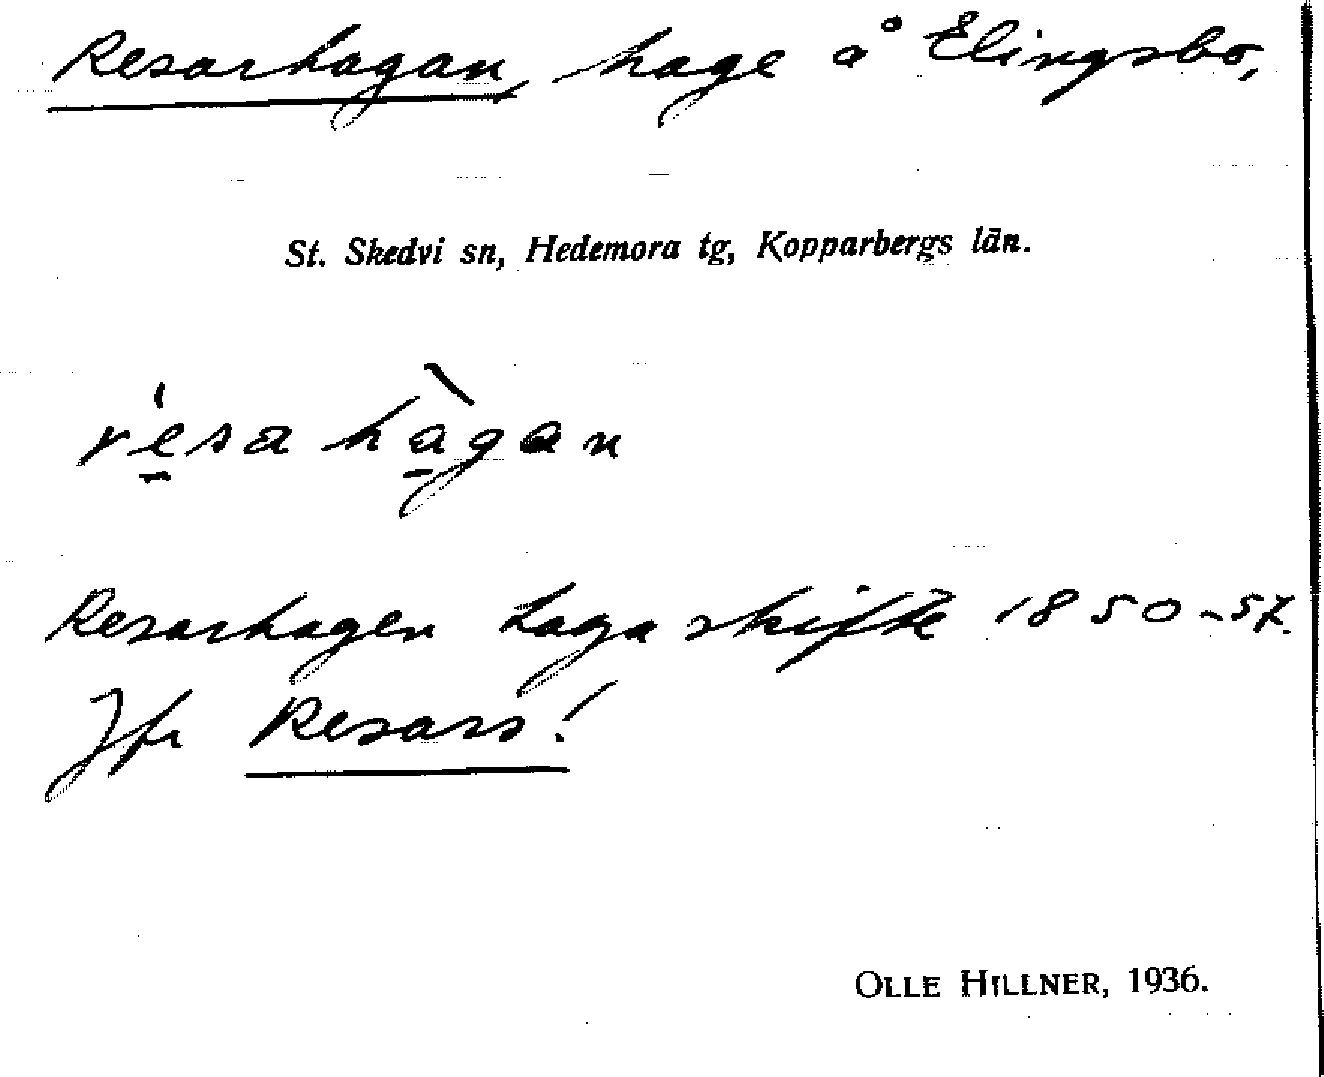 Resarhagan, hage å Elingsbo,
St. Skedvi sn, Hedemora tg, Kopparbergs län.
re̱´sa ha̱`gan
Resarhagen Laga skifte 1850-57.
Jfr Resars!
OLLE HILLNER, 1936.